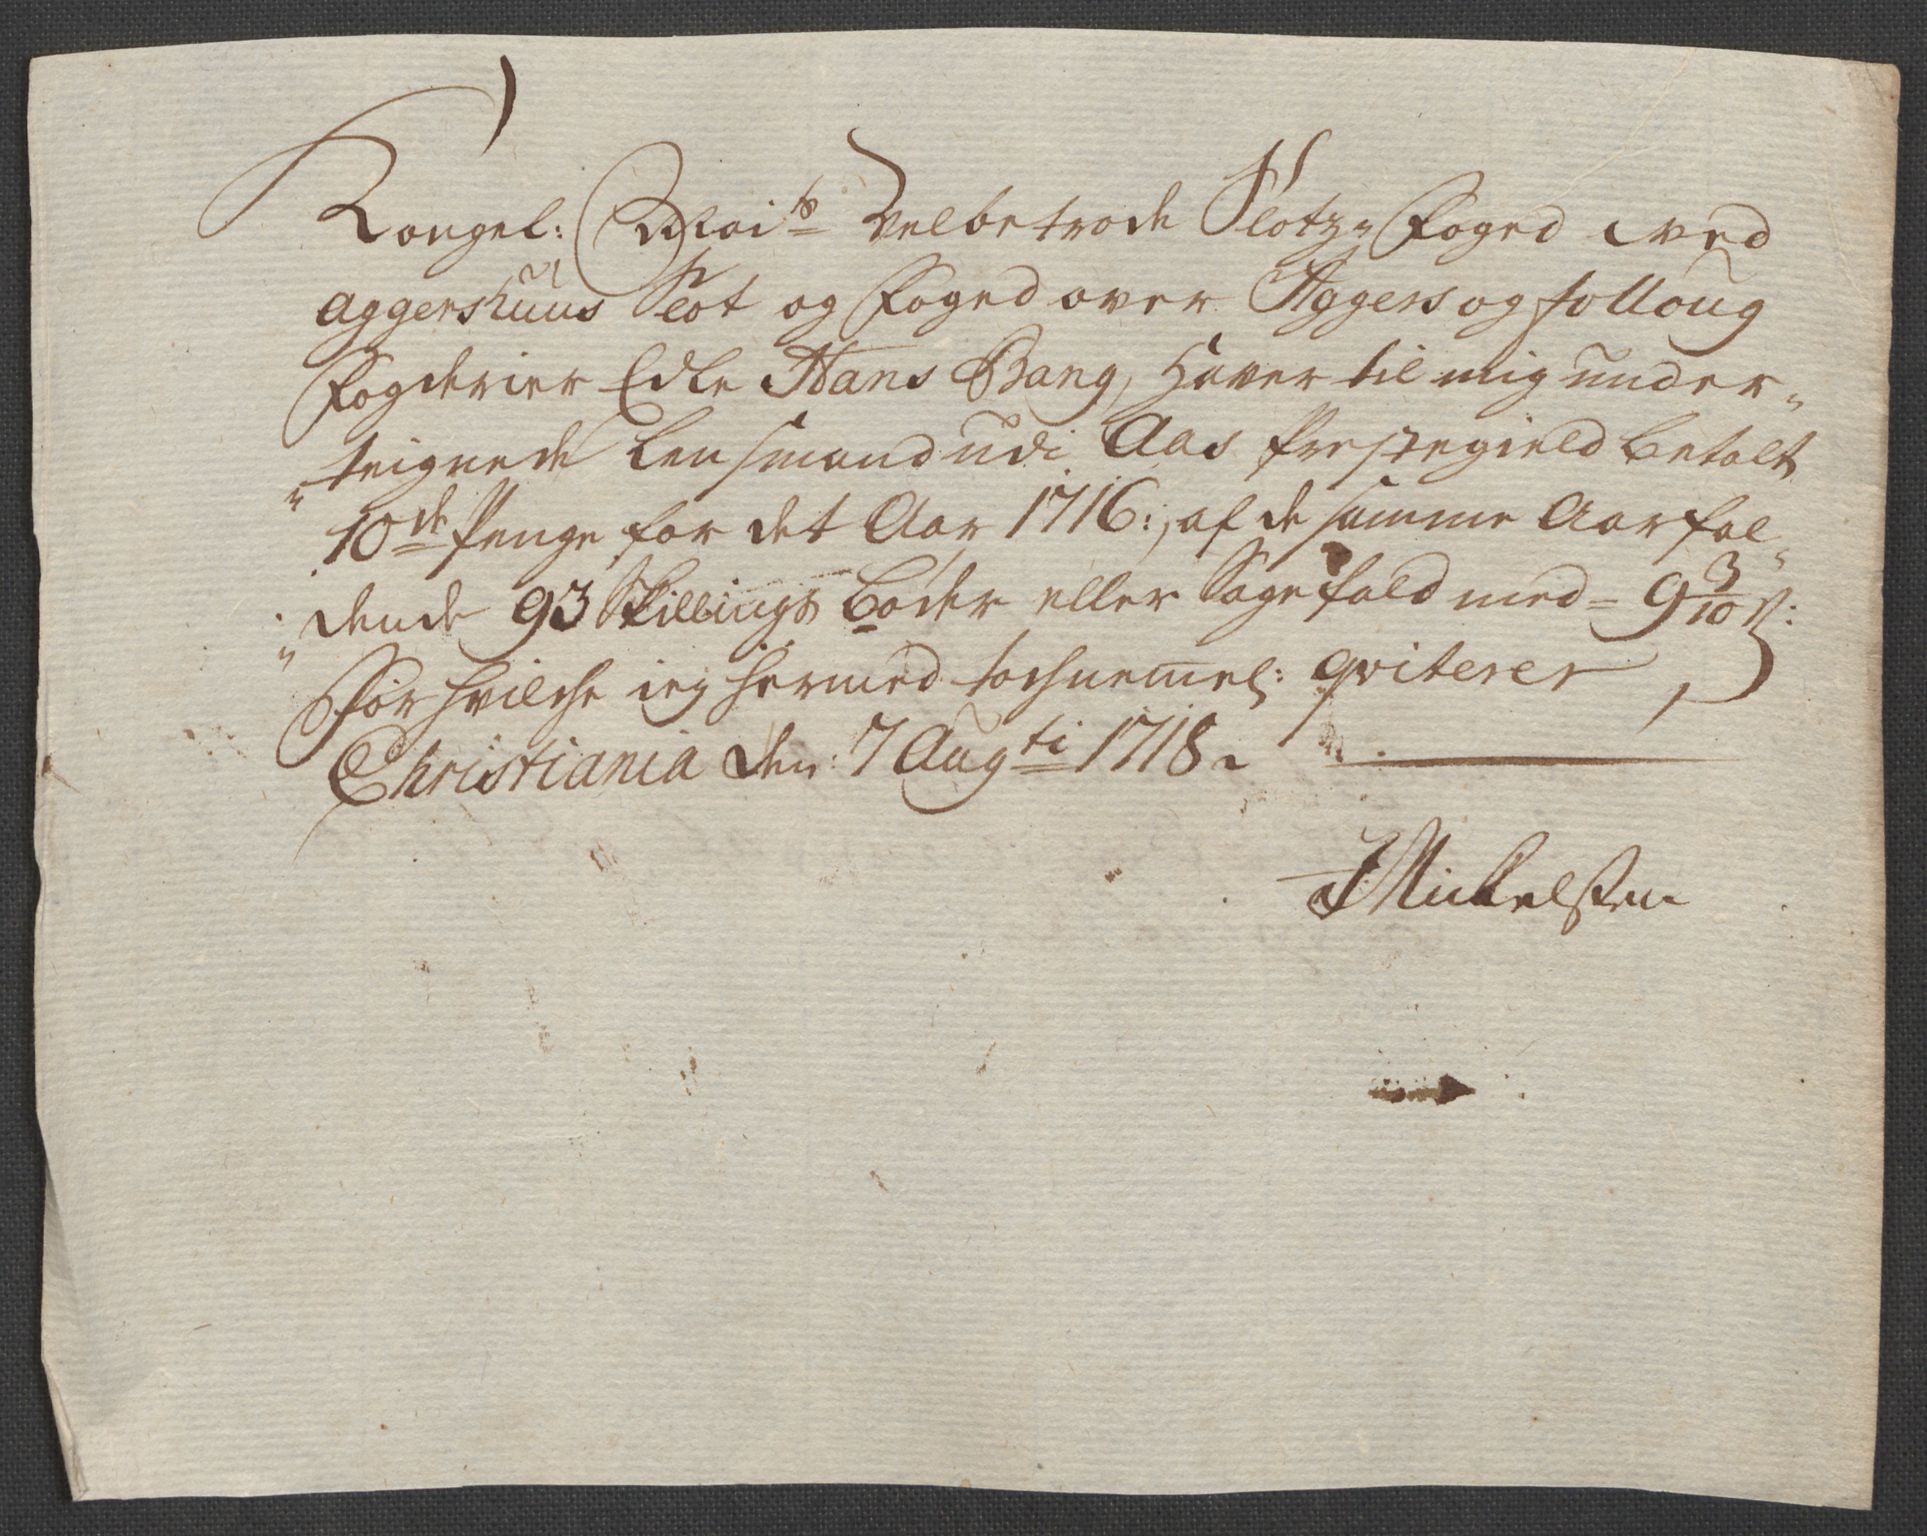 Kongel: Maits Velbetrode Slotz- Foged ved
Aggershuus Slot og Foged over Aggers og folloug
Fogderier Edle Hans Bang, haver til mig under-
"teignede Lensmand udi Aas Prestegield betalt
10de Penge for det Aar 1716:, af de samme Aar fal"
"dende 93 Skillings Bøder eller Sagefald med = 9 3/10 s:
For hvilche ieg hermed tachnemel: qviterer
Christiania den: 7 Augti 1718.
J Mickelsen